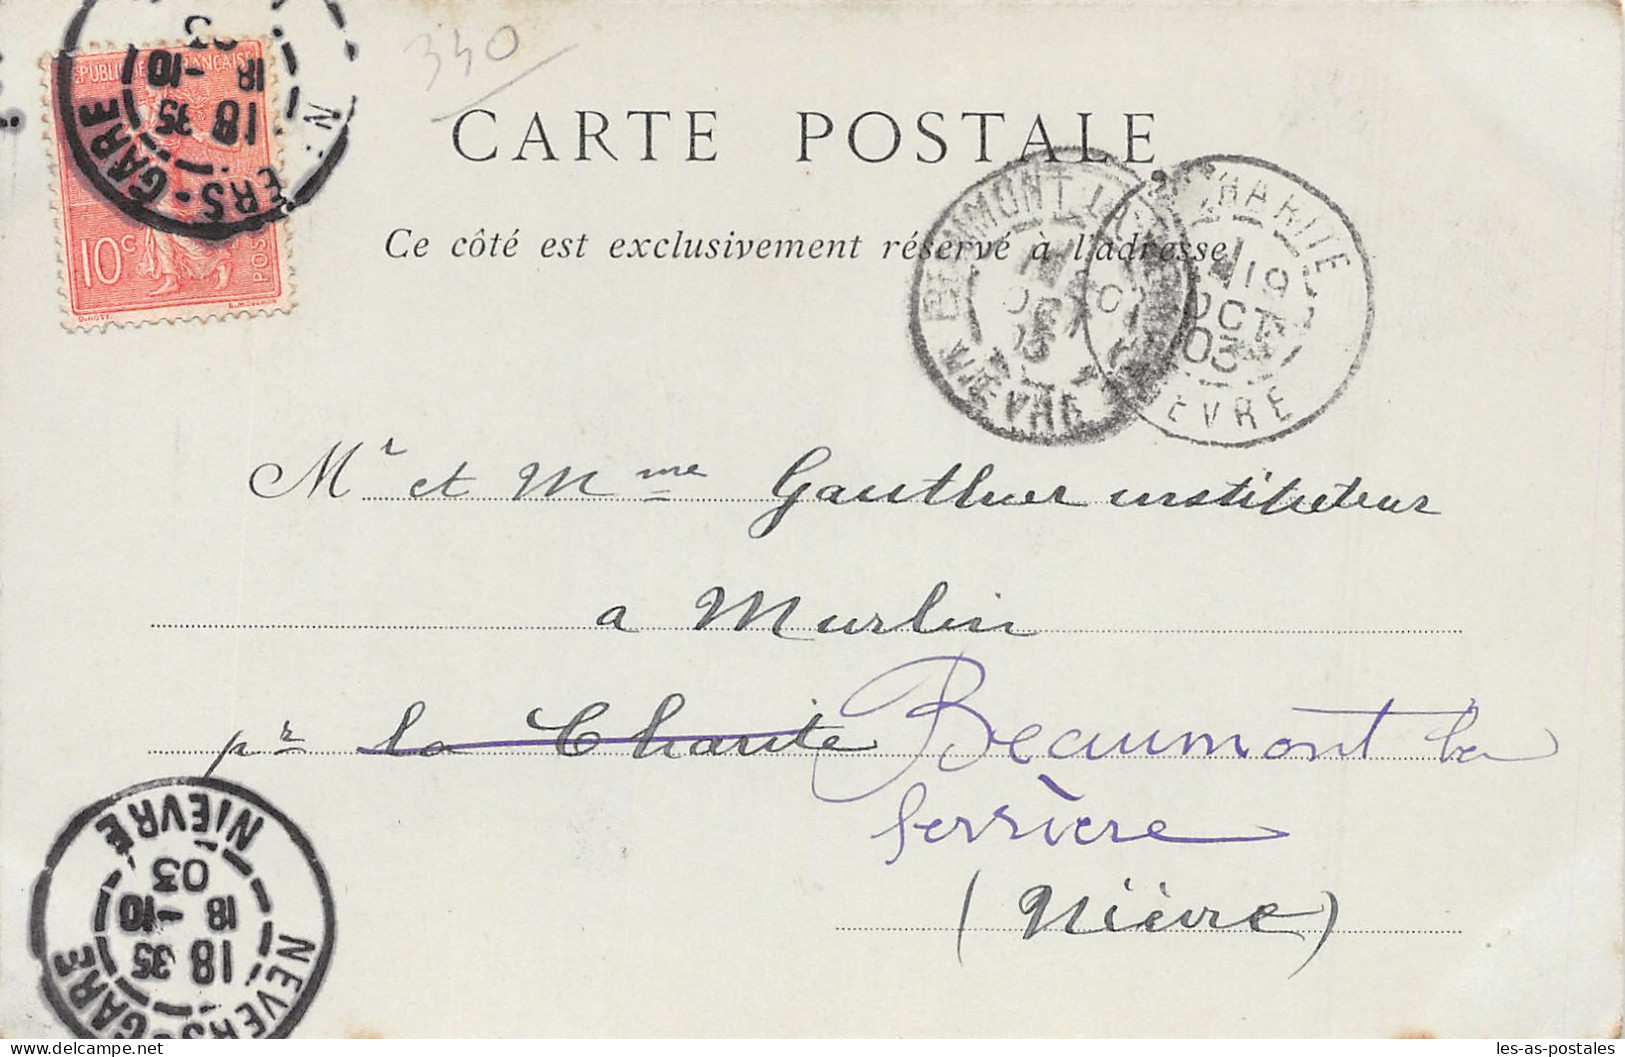 340
RÉPUBLIQUE FRANÇAISE
10c
POSTES
NEVERS-GARE
18 35
18 -10
03
CARTE POSTALE
Ce côté est exclusivement réservé à l'adresse
BEAUMONT LA
OCT
03
NIÈVRE
CHARITE
19
OCT
03
NIEVRE
Mr et Mme Gauthier instituteur
a Murlin
pr la Charite Beaumont la
ferrière
(Nièvre)
NEVERS-GARE
18 35
18 -10
03
NIEVRE
les-as-postales